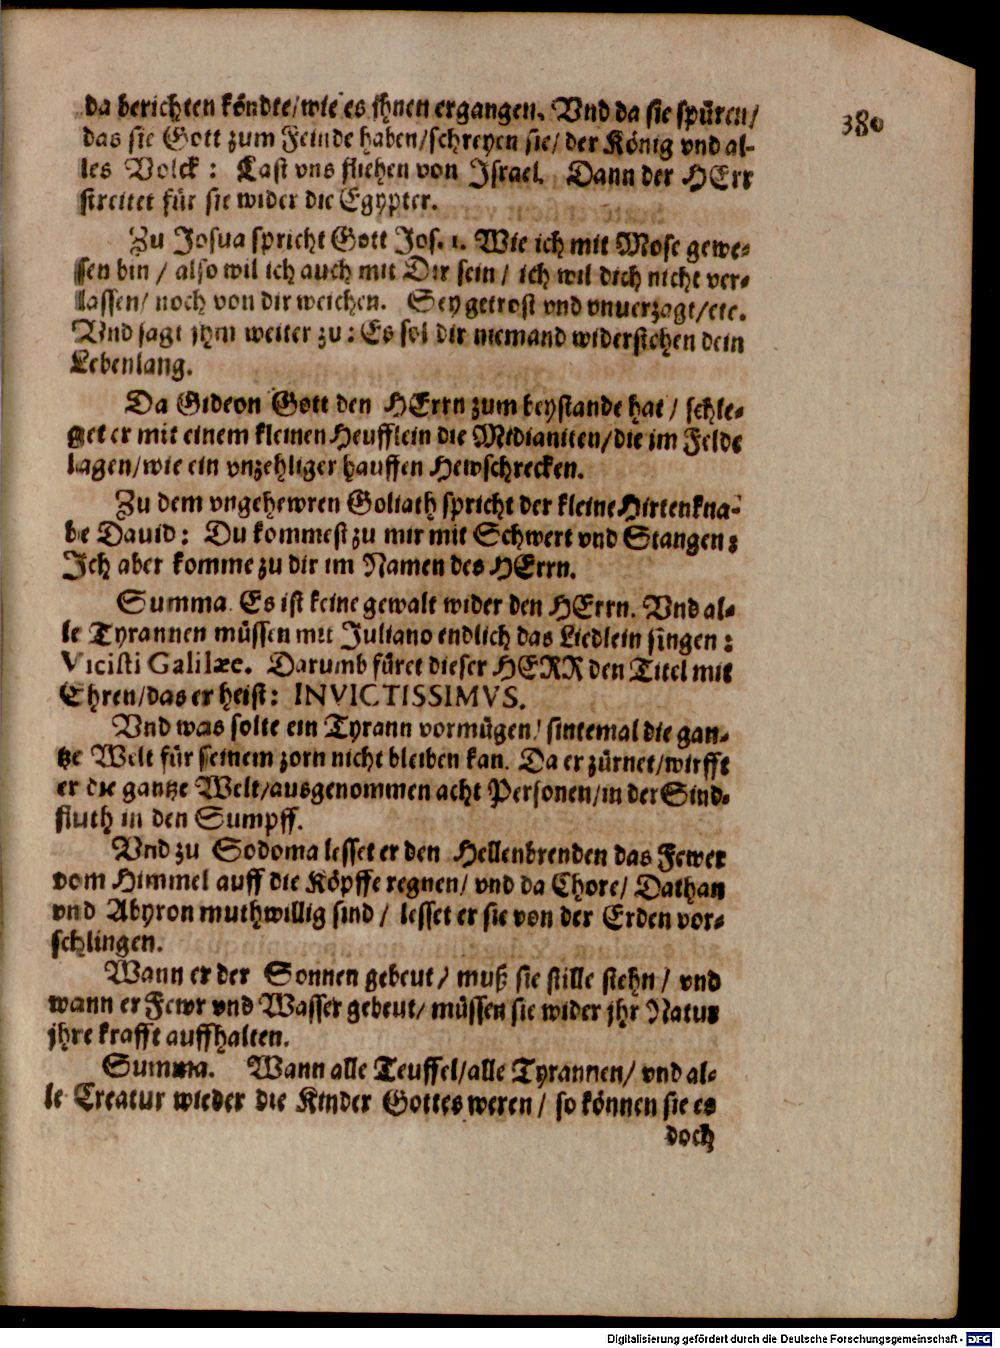 380
da berichten köndte/wie es jhnen ergangen. Vnd da sie spüren/
das sie Gott zum Feinde haben/schreyen sie/ der König vnd al-
les Volck: Last vns fliehen von Israel. Dann der HErr
streitet für sie wider die Egypter.
Zu Josua spricht Gott Jos. 1. Wie ich mit Mose gewe-
sen bin / also wil ich auch mit Dir sein / ich wil dich nicht ver-
lassen/ noch von dir weichen. Sey getrost vnd vnuerzagt/etc.
Vnd sagt jhm weiter zu: Es sol dir niemand widerstehen dein
Lebenlang.
Da Gideon Gott den HErrn zum beystande hat / schle-
get er mit einem kleinen Heufflein die Midianiten/die im Felde
lagen/wie ein vnzehliger hauffen Hewschrecken.
Zu dem vngehewren Goliath spricht der kleine Hirtenkna-
be Dauid: Du kommest zu mir mit Schwert vnd Stangen;
Ich aber komme zu dir im Namen des HErrn.
Summa. Es ist keine gewalt wider den HErrn. Vnd al-
le Tyrannen müssen mit Juliano endlich das Liedlein singen:
Vicisti Galilæe. Darumb füret dieser HERR den Titel mit
Ehren/das er heist: INVICTISSIMVS.
Vnd was solte ein Tyrann vormügen/ sintemal die gan-
tze Welt für seinem zorn nicht bleiben kan. Da er zürnet/wirfft
er die gantze Welt/ausgenommen acht Personen/in der Sind-
fluth in den Sumpff.
Vnd zu Sodoma lesset er den Hellenbrenden das Fewer
vom Himmel auff die Köpffe regnen/ vnd da Chore/ Dathan
vnd Abyron muthwillig sind / lesset er sie von der Erden vor-
schlingen.
Wann er der Sonnen gebeut / muß sie stille stehn / vnd
wann er Fewr vnd Wasser gebeut/ müssen sie wider jhr Natur
jhre krafft auffhalten.
Summa. Wann alle Teuffel/alle Tyrannen/ vnd al-
le Creatur wieder die Kinder Gottes weren / so können sie es
doch
Digitalisierung gefördert durch die Deutsche Forschungsgemeinschaft - DFG